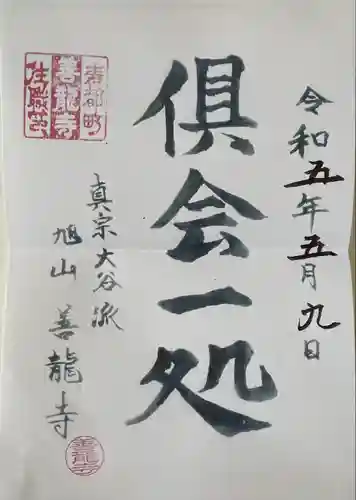 令和五年五月九日
倶会一処
真宗大谷派
旭山 善龍寺
寿都町
善龍寺
住職芝
善龍寺